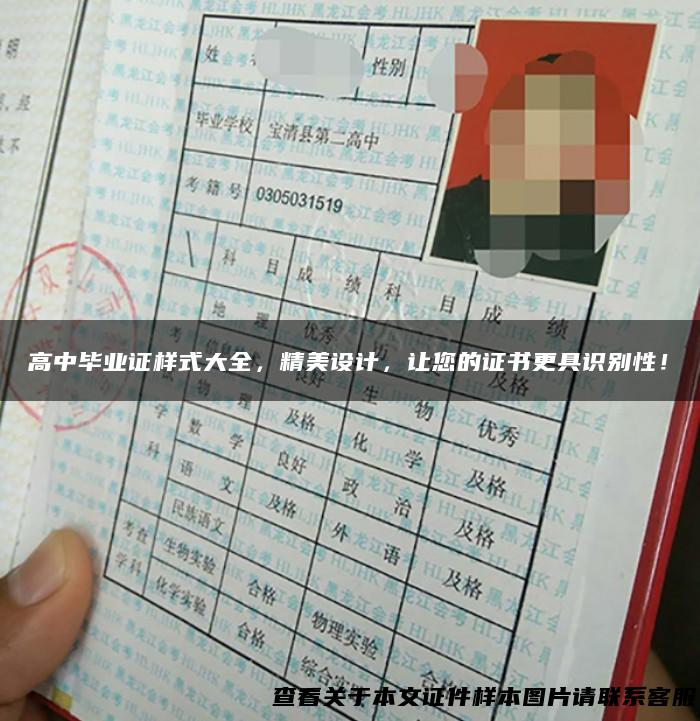 姓
性别
毕业学校
宝清县第二高中
考籍号
0305031519
科目
成绩
科目
成绩
地理
优秀
高中毕业证样式大全，精美设计，让您的证书更具识别性！
物理
及格
生物
优秀
数学
良好
化学
及格
语文
及格
政治
及格
民族语文
外语
及格
考查学科
生物实验
合格
物理实验
合格
化学实验
合格
综合实
黑龙江会考 HLJHK
查看关于本文证件样本图片请联系客服